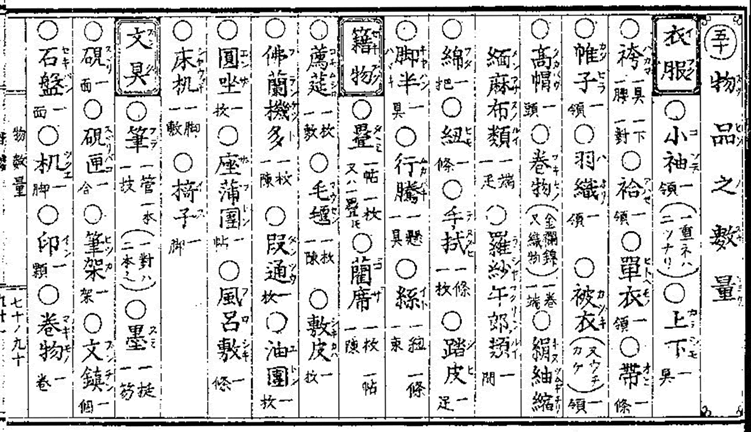 五十 物品之數量
衣服 ○小袖 一領 (一重ネハ二ツナリ) ○上下 一具
袴 一具 一下 一腰 一對 ○袷 一領 ○單衣 一領 ○帶 一條
帷子 一領 ○羽織 一領 ○被衣 (又ウチカケ) 一領
高帽 一頭 ○卷物 (金襴錦又織物) 一卷 一端 ○絹紬縮
緬麻布類 一端 一疋 ○羅紗午郎類 一間
綿 一把 ○紐 一條 ○手拭 一條 一枚 ○踏皮 一足
脚半 一具 ○行騰 一懸 一具 ○絲 一紐 一條 一束
籍物 ○疊 一帖 一枚 又ハ一疊ト ○藺席 一枚 一帖 一陳
薦莚 一枚 一敷 ○毛氈 一枚 一陳 ○敷皮 一枚
佛蘭機多 一枚 一陳 ○段通 一枚 ○油團 一枚
圓坐 一枚 ○座蒲團 一帖 ○風呂敷 一條
床机 一脚 一敷 ○椅子 一脚
文具 ○筆 一管 一本 一枝 (一對ハ二本) ○墨 一挺 一笏
硯 一面 ○硯匣 一合 ○筆架 一架 ○文鎮 一個
石盤 一面 ○机 一脚 ○印 一顆 ○卷物 一卷
物數量 七十ノ九十